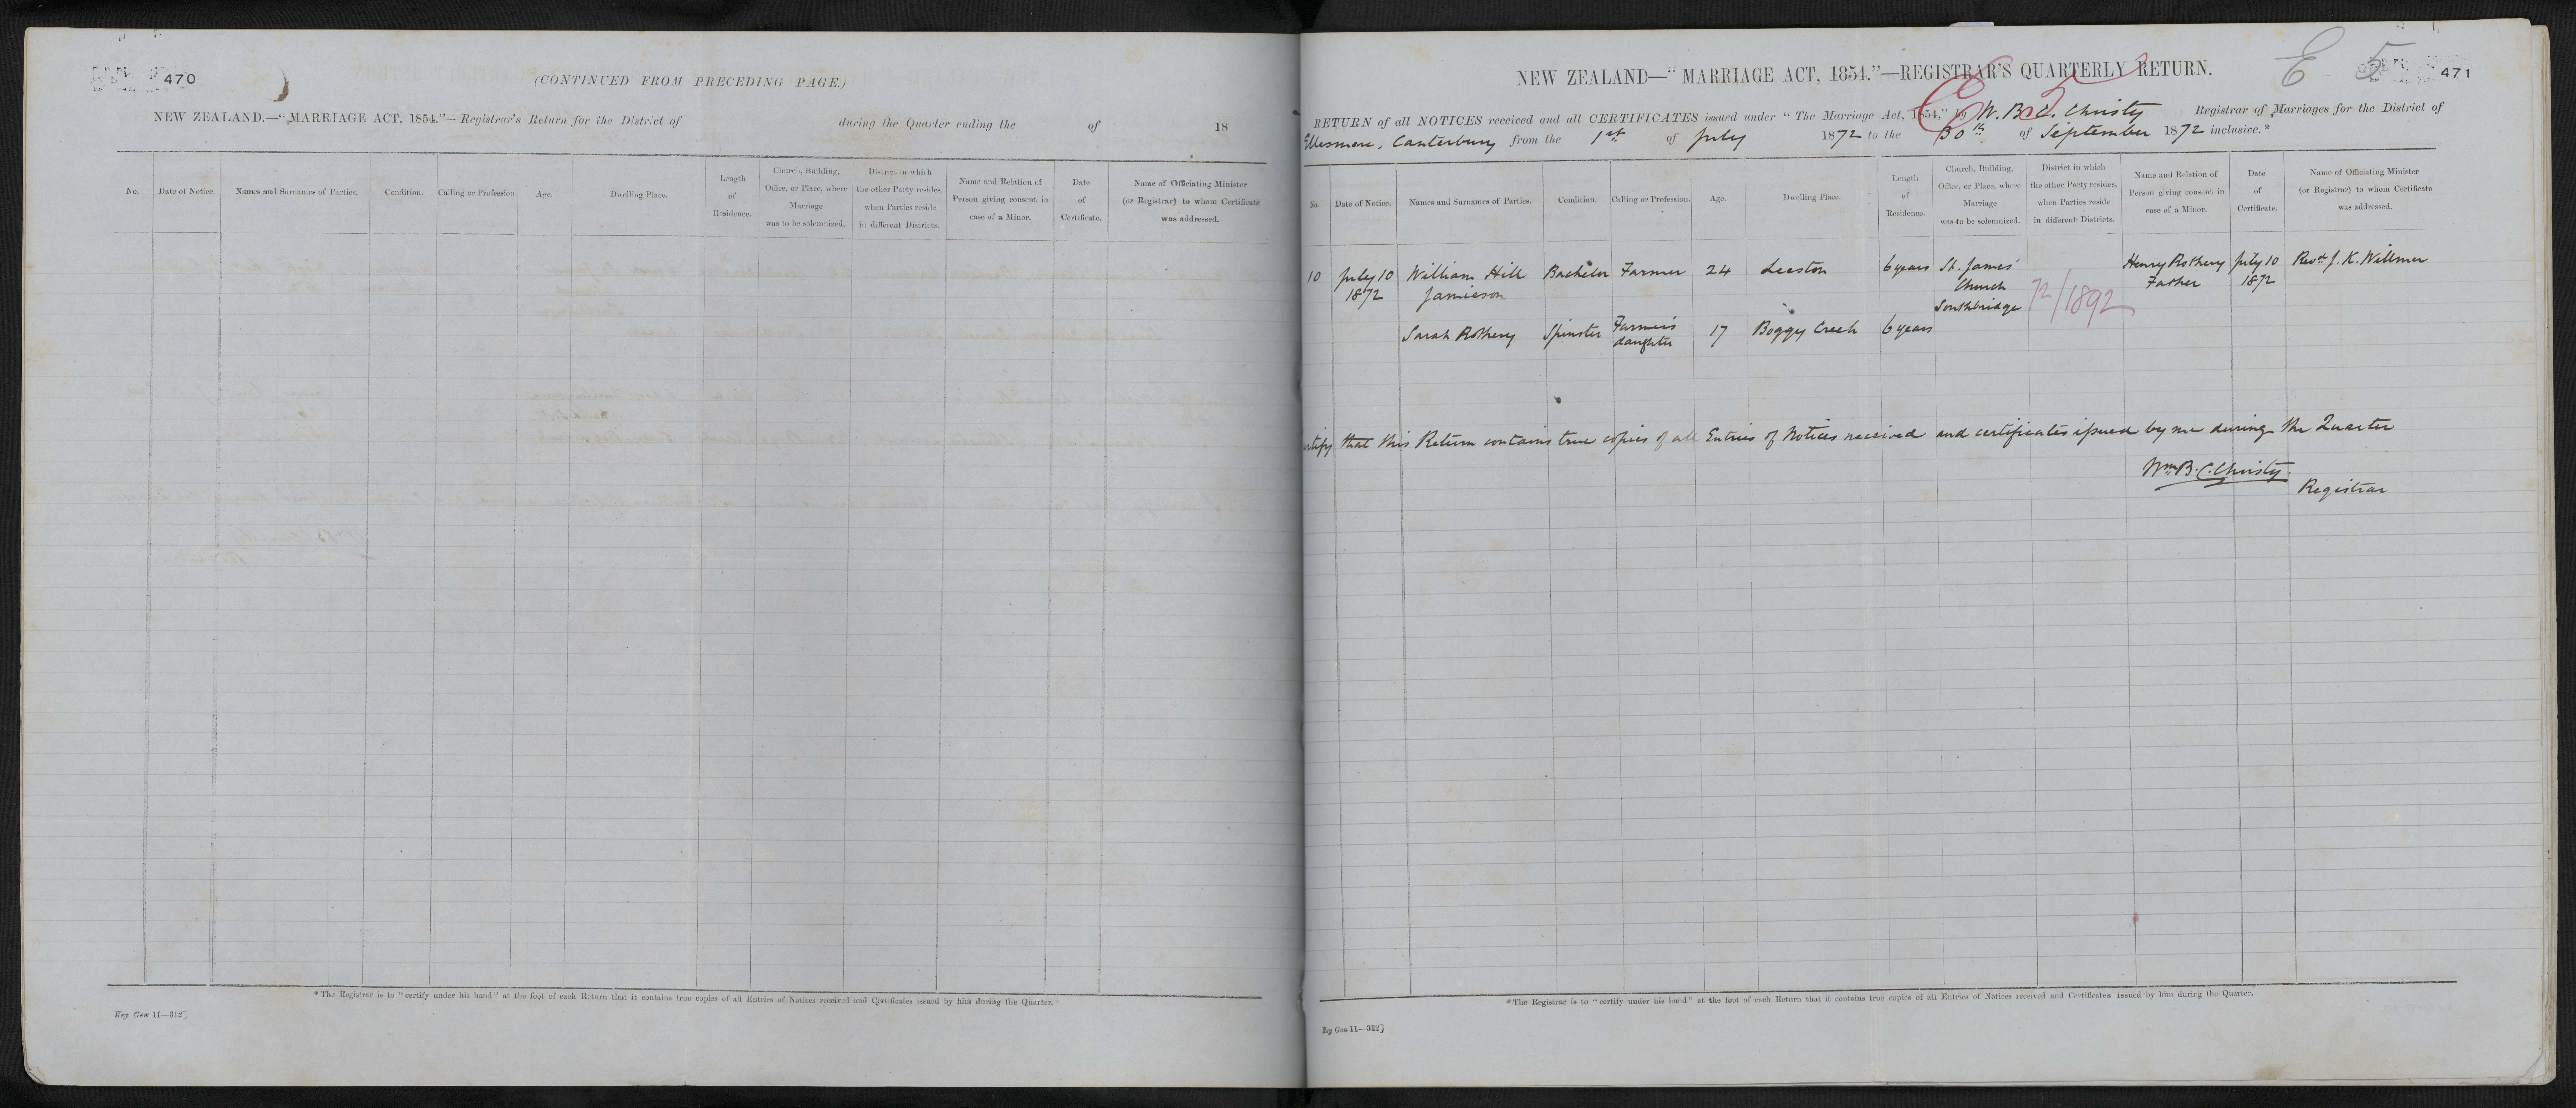 470
(CONTINUED FROM PRECEDING PAGE.)
NEW ZEALAND.—"MARRIAGE ACT, 1854."—Registrar's Return for the District of during the Quarter ending the of 18
No. Date of Notice. Names and Surnames of Parties. Condition. Calling or Profession. Age. Dwelling Place. Length of Residence. Church, Building, Office, or Place, where Marriage was to be solemnized. District in which the other Party resides, when Parties reside in different Districts. Name and Relation of Person giving consent in case of a Minor. Date of Certificate. Name of Officiating Minister (or Registrar) to whom Certificate was addressed.
*The Registrar is to "certify under his hand" at the foot of each Return that it contains true copies of all Entries of Notices received and Certificates issued by him during the Quarter.
Reg Gen 11—312]
E 5
471
NEW ZEALAND—"MARRIAGE ACT, 1854."—REGISTRAR'S QUARTERLY RETURN.
E 5
RETURN of all NOTICES received and all CERTIFICATES issued under "The Marriage Act, 1854," by W. B. C. Christy Registrar of Marriages for the District of
Ellesmere, Canterbury from the 1st of July 1872 to the 30th of September 1872 inclusive.*
No. Date of Notice. Names and Surnames of Parties. Condition. Calling or Profession. Age. Dwelling Place. Length of Residence. Church, Building, Office, or Place, where Marriage was to be solemnized. District in which the other Party resides, when Parties reside in different Districts. Name and Relation of Person giving consent in case of a Minor. Date of Certificate. Name of Officiating Minister (or Registrar) to whom Certificate was addressed.
10 July 10 William Hill Bachelor Farmer 24 Leeston 6 years St. James' Henry Rothery July 10 Revd. J. K. Willmer
1872 Jamieson Church Father 1872
Southbridge 72/1892
Sarah Rothery Spinster Farmer's 17 Boggy Creek 6 years
daughter
certify that this Return contains true copies of all Entries of Notices received and certificates issued by me during the Quarter
Wm B. C. Christy
Registrar
*The Registrar is to "certify under his hand" at the foot of each Return that it contains true copies of all Entries of Notices received and Certificates issued by him during the Quarter.
Reg Gen 11—312]